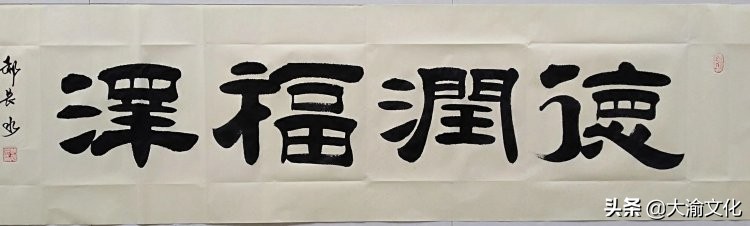 德潤福澤
郝长水
头条 @大渝文化